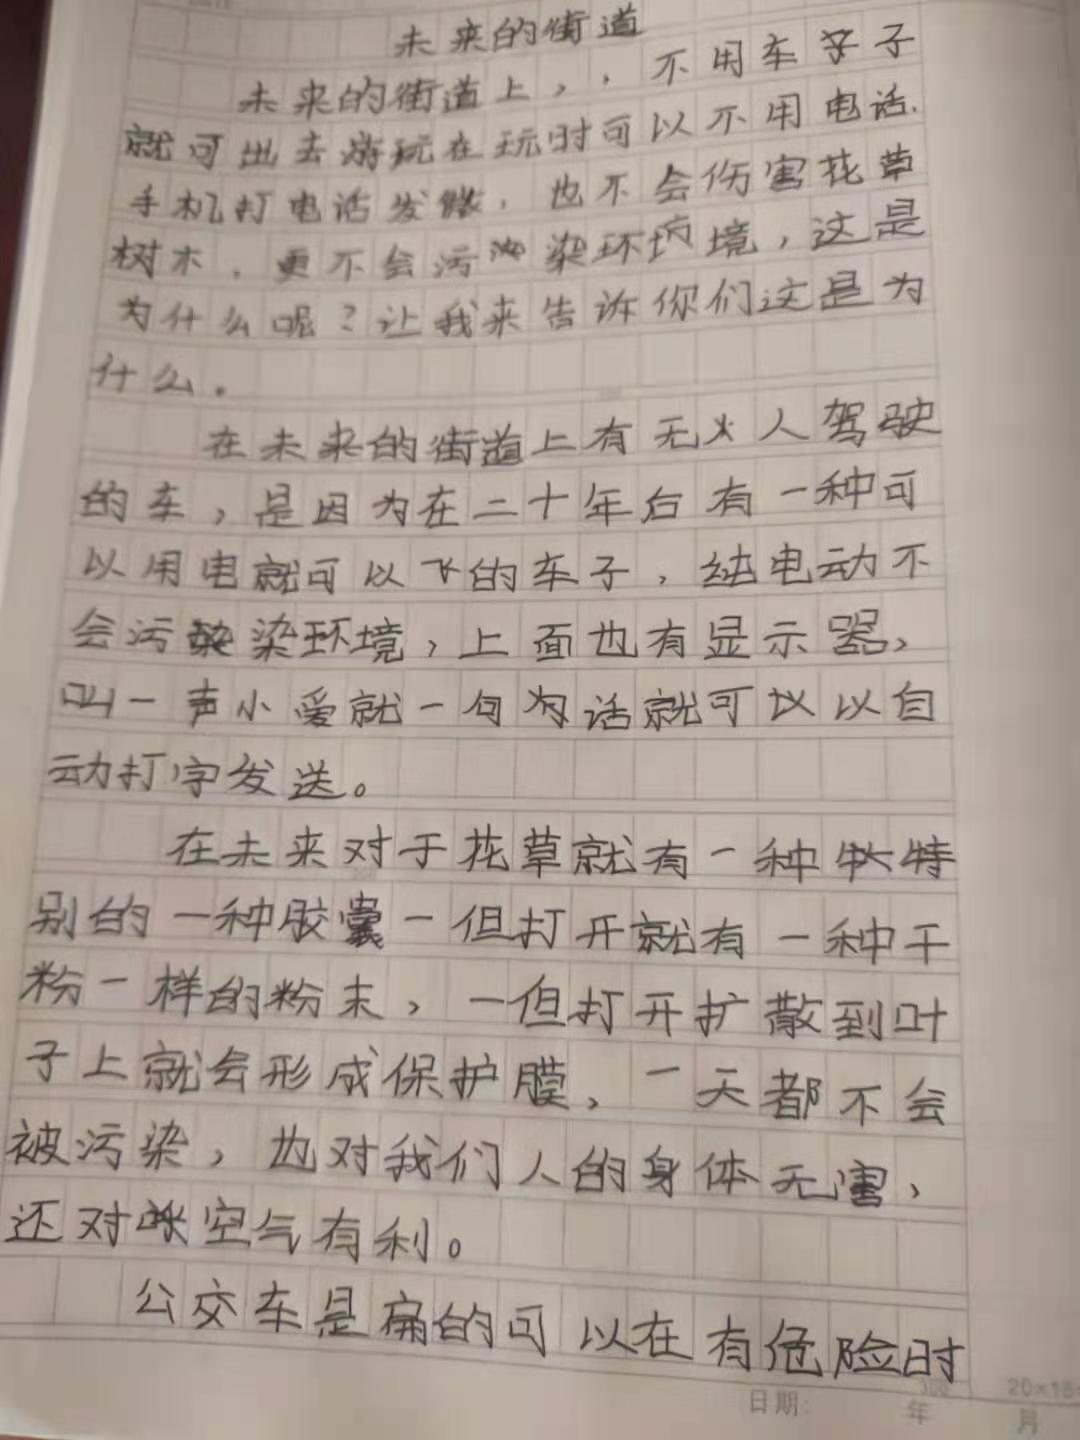 未来的街道
未来的街道上，，不用车子
就可出去游玩在玩时可以不用电话.
手机打电话发微，也不会伤害花草
树木．更不会污染环境，这是
为什么呢？让我来告诉你们这是为
什么．
在未来的街道上有无人驾驶
的车，是因为在二十年后有一种可
以用电就可以飞的车子，纯电动不
会污染环境，上面也有显示器，
叫一声小爱就一句话就可以以自
动打字发送。
在未来对于花草就有一种特
别的一种胶囊一但打开就有一种干
粉一样的粉末，一但打开扩散到叶
子上就会形成保护膜，一天都不会
被污染，也对我们人的身体无害，
还对空气有利。
公交车是扁的可以在有危险时
日期: 年 月
300
20×15